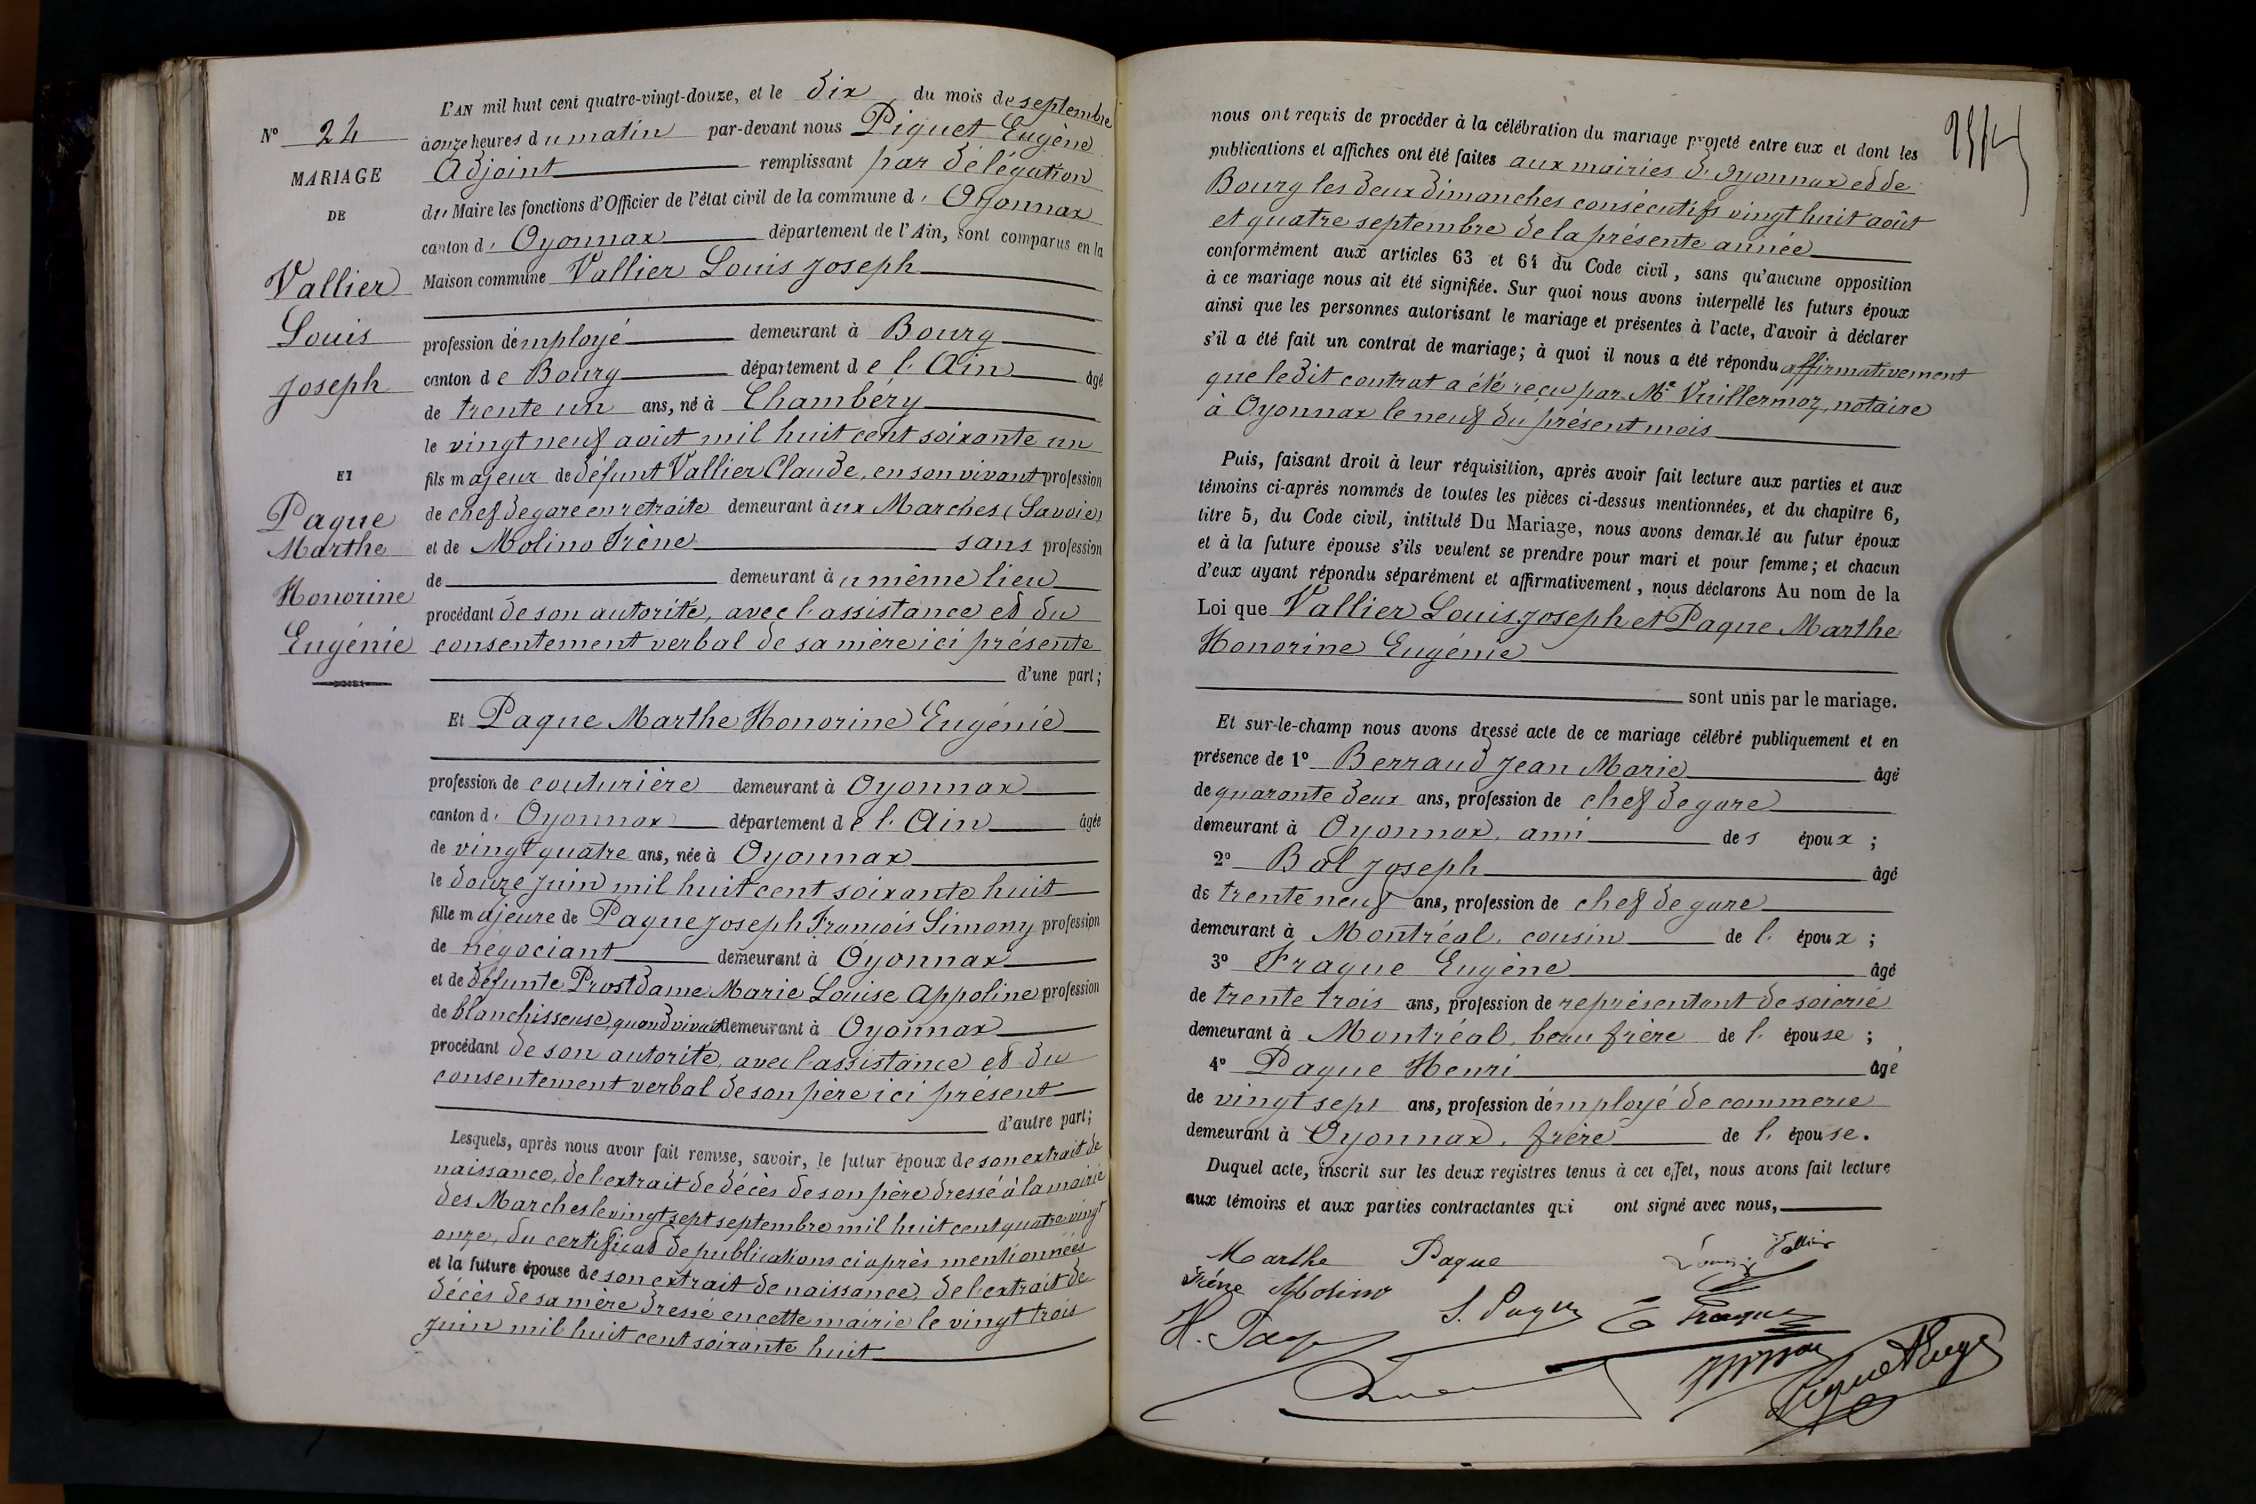 L'AN mil huit cent quatre-vingt-douze, et le dix du mois de septembre
N° 24
à onze heures du matin par-devant nous Piquet Eugène
Adjoint remplissant par délégation
MARIAGE
du Maire les fonctions d'Officier de l'état civil de la commune d' Oyonnax
DE
canton d' Oyonnax département de l'Ain, sont comparus en la
Maison commune Vallier Louis Joseph
Vallier
Louis
profession d'employé demeurant à Bourg
Joseph
canton de Bourg département de l'Ain âgé
de trente un ans, né à Chambéry
le vingt neuf août mil huit cent soixante un
ET
fils majeur de défunt Vallier Claude, en son vivant profession
Paque
de chef de gare en retraite demeurant aux Marches (Savoie)
Marthe
et de Molino Irène sans profession
de demeurant au même lieu
Honorine
procédant de son autorité, avec l'assistance et du
Eugénie
consentement verbal de sa mère ici présente
d'une part;
Et Paque Marthe Honorine Eugénie
profession de couturière demeurant à Oyonnax
canton d' Oyonnax département de l'Ain âgée
de vingt quatre ans, née à Oyonnax
le douze juin mil huit cent soixante huit
fille majeure de Paque Joseph François Simony profession
de négociant demeurant à Oyonnax
et de défunte Prostdame Marie Louise Appoline profession
de blanchisseuse, quand vivait demeurant à Oyonnax
procédant de son autorité, avec l'assistance et du
consentement verbal de son père ici présent
d'autre part;
Lesquels, après nous avoir fait remise, savoir, le futur époux de son extrait de
naissance, de l'extrait de décès de son père dressé à la mairie
des Marches le vingt sept septembre mil huit cent quatre vingt
onze, du certificat de publications ci après mentionnées
et la future épouse de son extrait de naissance, de l'extrait de
décès de sa mère dressé en cette mairie le vingt trois
juin mil huit cent soixante huit
nous ont requis de procéder à la célébration du mariage projeté entre eux et dont les
publications et affiches ont été faites aux mairies d'Oyonnax et de
Bourg les deux dimanches consécutifs vingt huit août
et quatre septembre de la présente année
conformément aux articles 63 et 64 du Code civil, sans qu'aucune opposition
à ce mariage nous ait été signifiée. Sur quoi nous avons interpellé les futurs époux
ainsi que les personnes autorisant le mariage et présentes à l'acte, d'avoir à déclarer
s'il a été fait un contrat de mariage; à quoi il nous a été répondu affirmativement
que ledit contrat a été reçu par Me Vuillermoz, notaire
à Oyonnax le neuf du présent mois
Puis, faisant droit à leur réquisition, après avoir fait lecture aux parties et aux
témoins ci-après nommés de toutes les pièces ci-dessus mentionnées, et du chapitre 6,
titre 5, du Code civil, intitulé Du Mariage, nous avons demandé au futur époux
et à la future épouse s'ils veulent se prendre pour mari et pour femme; et chacun
d'eux ayant répondu séparément et affirmativement, nous déclarons Au nom de la
Loi que Vallier Louis Joseph et Paque Marthe
Honorine Eugénie
sont unis par le mariage.
Et sur-le-champ nous avons dressé acte de ce mariage célébré publiquement et en
présence de 1° Berraud Jean Marie âgé
de quarante deux ans, profession de chef de gare
demeurant à Oyonnax, ami des époux;
2° Bal Joseph âgé
de trente neuf ans, profession de chef de gare
demeurant à Montréal, cousin de l'époux;
3° Fraque Eugène âgé
de trente trois ans, profession de représentant de soierie
demeurant à Montréal, beau frère de l'épouse;
4° Paque Henri âgé
de vingt sept ans, profession d'employé de commerce
demeurant à Oyonnax, frère de l'épouse.
Duquel acte, inscrit sur les deux registres tenus à cet effet, nous avons fait lecture
aux témoins et aux parties contractantes qui ont signé avec nous,
Marthe Paque Louis Vallier
Irène Molino
H. Paque S. Paque E Fraque
Piquet Eug